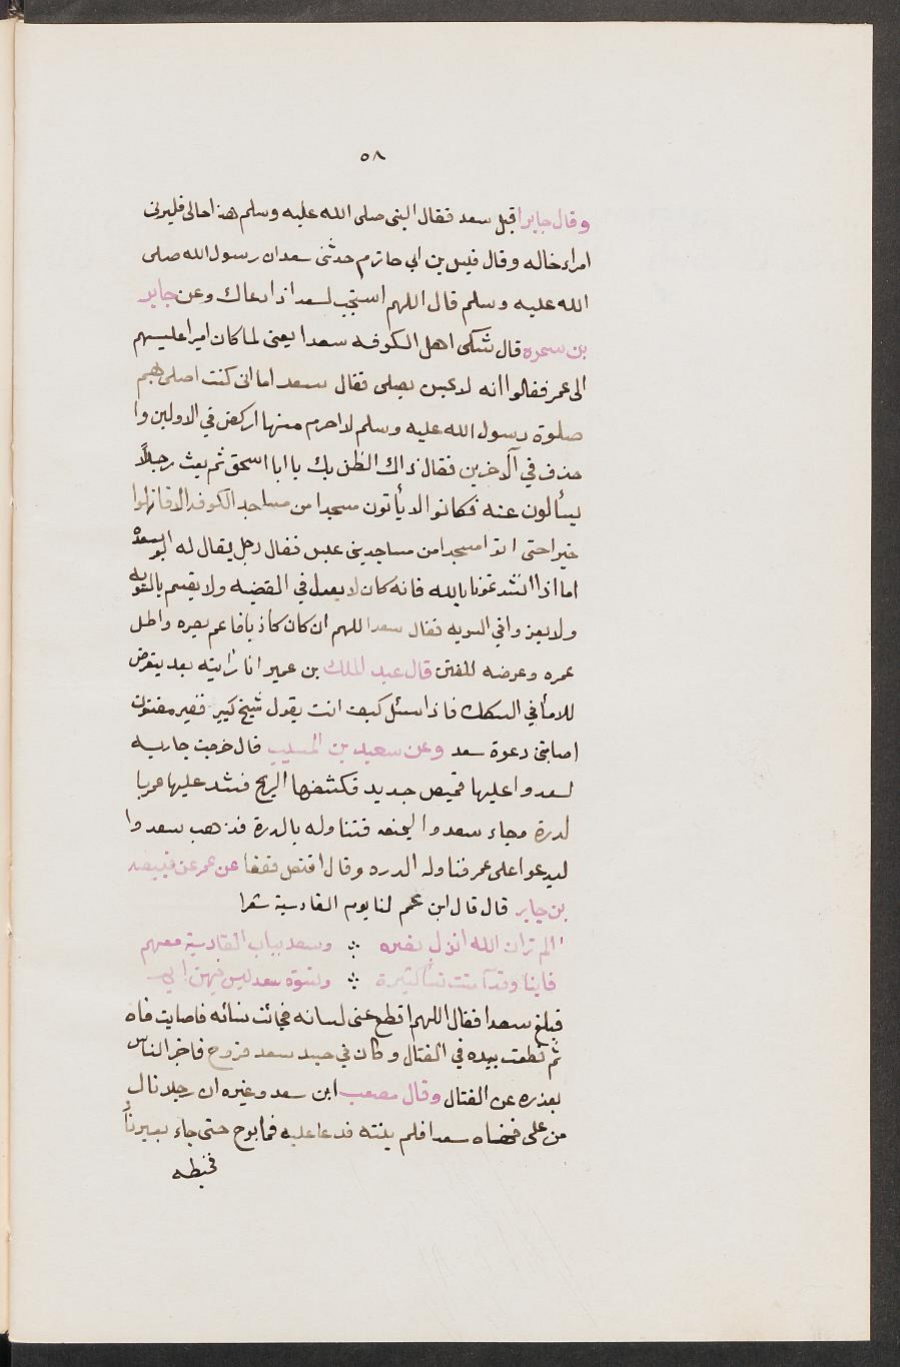 ٥٨
وقال جابر اقبل سعد فقال النبى صلى الله عليه وسلم هذا خالى فليرنى
امراء خاله وقال قيس بن ابى حازم حدثنى سعد ان رسول الله صلى
الله عليه وسلم قال اللهم استجب لسعد اذا دعاك وعن جابر
بن سمره قال شكى اهل الكوفه سعدا يعنى لما كان اميرا عليهم
الى عمر فقالوا انه لا يحسن يصلى فقال سعد اما انى كنت اصلى بهم
صلوة رسول الله عليه وسلم لا اخرم منها اركض في الاولين وا
حذف في الآخرين فقال ذاك الظن بك يا ابا اسحق ثم بعث رجلاً
يسألون عنه فكانوا لا يأتون مسجدا من مساجد الكوفه الا قالوا
خيرا حتى اتوا مسجدا من مساجد بنى عبس فقال رجل يقال له ابو سعدة
اما اذا انشدتمونا بالله فانه كان لا يعدل في القضيه ولا يقسم بالسويه
ولا يغزوا في السريه فقال سعد اللهم ان كان كاذبا فاعم بصره واطل
عمره وعرضه للفتن قال عبد الملك بن عمير انا رايته بعد يتعرض
للاماٍ في السكك فاذا سئل كيف انت يقول شيخ كبير فقير مفتون
اصابتنى دعوة سعد وعن سعيد بن المسيب قال خرجت جاريه
لسعد وا عليها قميص جديد فكشفها الريح فشد عليها عمر با
لدرة وجاء سعد وا ليمنعه فتناوله بالدرة فذهب سعد وا
ليدعوا على عمر فناوله الدره وقال اقتص فعفا عن عمر عن قبيصه
بن جابر قال قال ابن عم لنا يوم القادسية شعرا
الم تر ان الله انزل نصره ∴ وسعد بباب القادسية معصم
فابنا وقد آمت نسأ كثيرة ∴ ونسوة سعد ليس فيهن ايم
فبلغ سعدا فقال اللهم اقطع عنى لسانه فجائت نشابه فاصابت فاه
ثم قطعت بيده في القتال وكان في جسد سعد قروح فاخبر الناس
بعذره عن القتال وقال مصعب ابن سعد وغيره ان رجلا نال
من على فنهاه سعدا فلم ينته فدعا عليه فما برح حتى جاء بعير نادٌّ
فخبطه